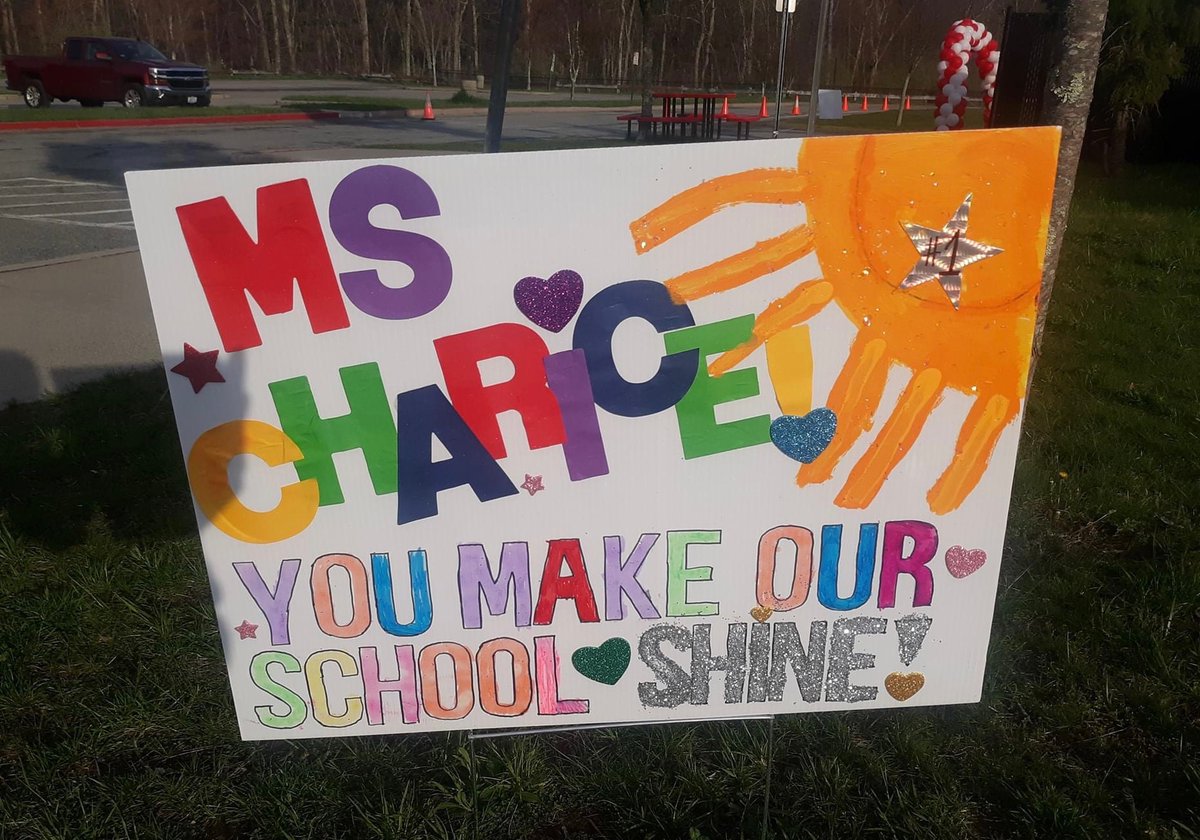 MS
CHARICE!
#1
YOU MAKE OUR
SCHOOL SHINE!